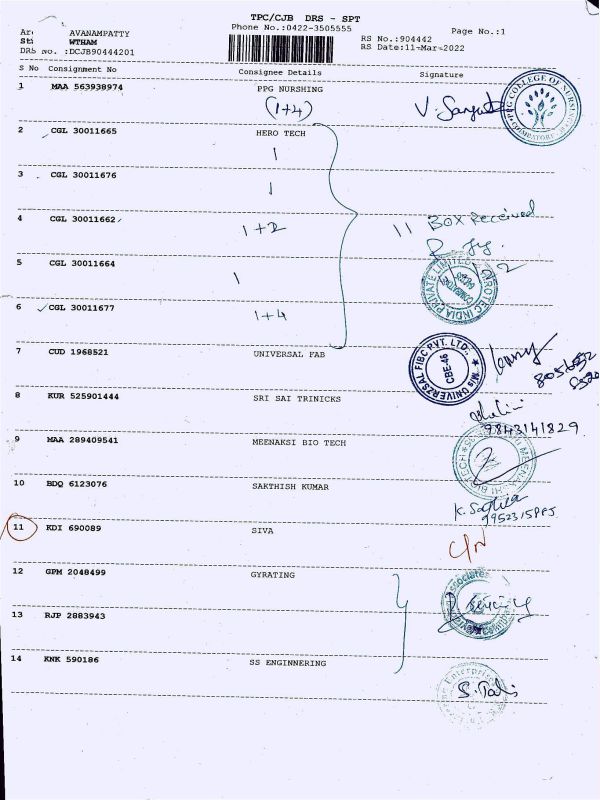 TPC/CJB DRS - SPT
Phone No.:0422-3505555
Page No.:1
AVANAMPATTY
WTHAM
DRS No. :DCJB90444201
RS No.:904442
RS Date:11-Mar-2022
S No Consignment No Consignee Details Signature
1 MAA 563938974 PPG NURSHING
(1+4)
PPG COLLEGE OF NURSING
COIMBATORE
2 CGL 30011665 HERO TECH
1
3 CGL 30011676
1
4 CGL 30011662 1+2
11 BOX Received
5 CGL 30011664
1
6 CGL 30011677 1+4
7 CUD 1968521 UNIVERSAL FAB
M/s UNIVERZSAL FIBC PVT. LTD.,
CBE-46
8 KUR 525901444 SRI SAI TRINICKS
9843141829
9 MAA 289409541 MEENAKSI BIO TECH
10 BDQ 6123076 SAKTHISH KUMAR
11 KDI 690089 SIVA
12 GPM 2048499 GYRATING
13 RJP 2883943
14 KNK 590186 SS ENGINNERING